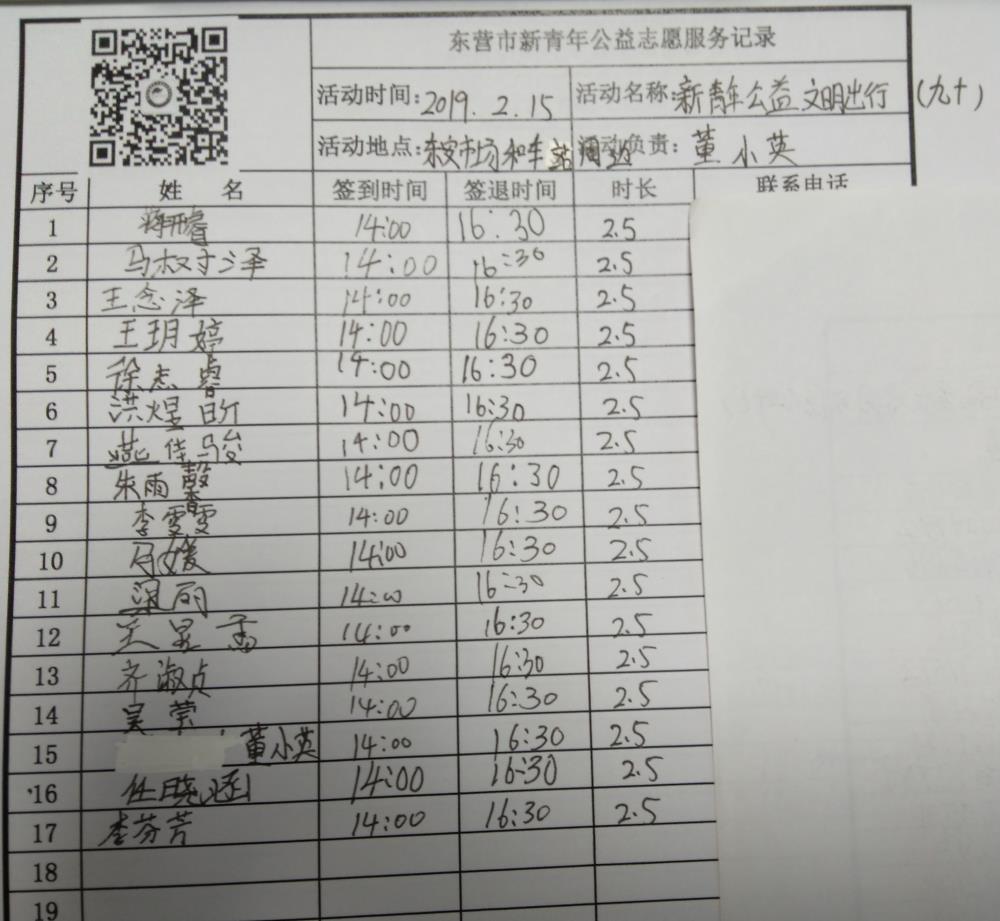 东营市新青年公益志愿服务记录
活动时间:2019.2.15 活动名称:新青年公益文明出行(九十)
活动地点:东安市场和车站周边 活动负责:董小英
序号 姓名 签到时间 签退时间 时长 联系电话
1 蒋开睿 14:00 16:30 2.5
2 马权于泽 14:00 16:30 2.5
3 王念泽 14:00 16:30 2.5
4 王玥婷 14:00 16:30 2.5
5 徐志睿 14:00 16:30 2.5
6 洪煜昕 14:00 16:30 2.5
7 燕佳骏 14:00 16:30 2.5
8 朱雨馨 14:00 16:30 2.5
9 李雯雯 14:00 16:30 2.5
10 马媛 14:00 16:30 2.5
11 梁丽 14:00 16:30 2.5
12 王显 14:00 16:30 2.5
13 齐淑贞 14:00 16:30 2.5
14 吴荣 14:00 16:30 2.5
15 董小英 14:00 16:30 2.5
16 任晓涵 14:00 16:30 2.5
17 李芬芳 14:00 16:30 2.5
18
19